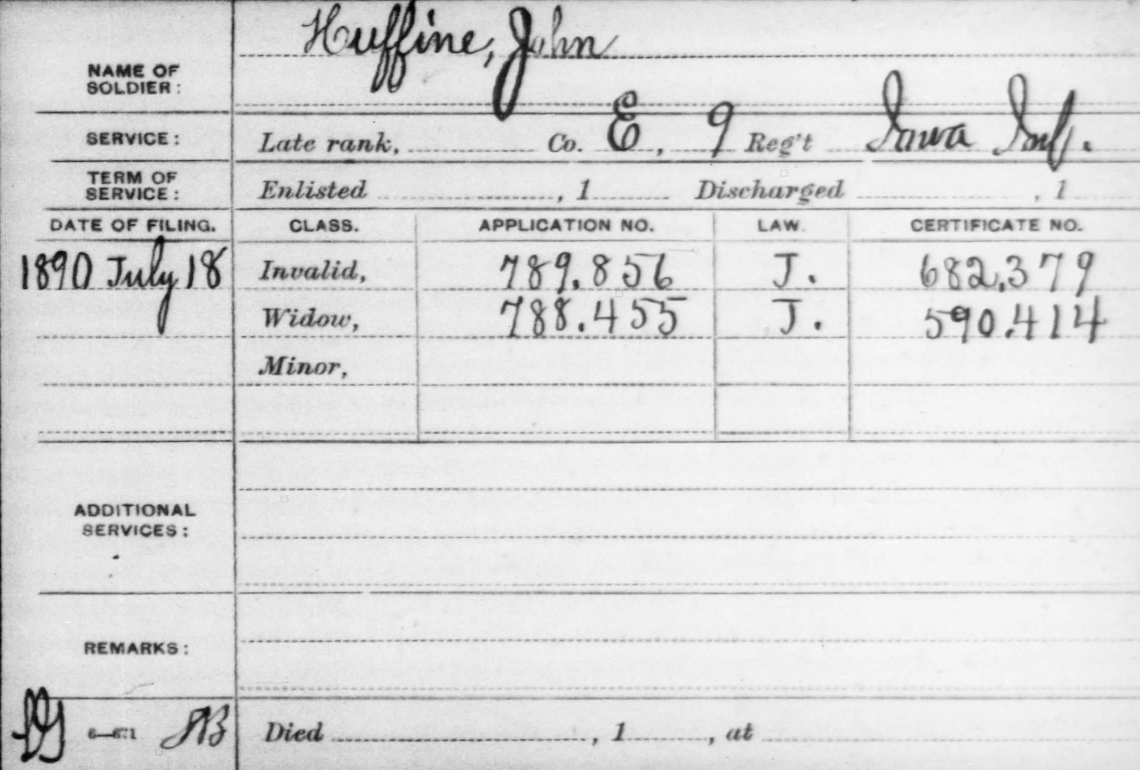 Huffine, John
NAME OF
SOLDIER:
SERVICE: Late rank, Co. E, 9 Reg't Iowa Inf.
TERM OF
SERVICE: Enlisted , 1 Discharged , 1
DATE OF FILING. CLASS. APPLICATION NO. LAW. CERTIFICATE NO.
1890 July 18 Invalid, 789.856 J. 682.379
Widow, 788.455 J. 590.414
Minor,
ADDITIONAL
SERVICES:
REMARKS:
Died , 1 , at